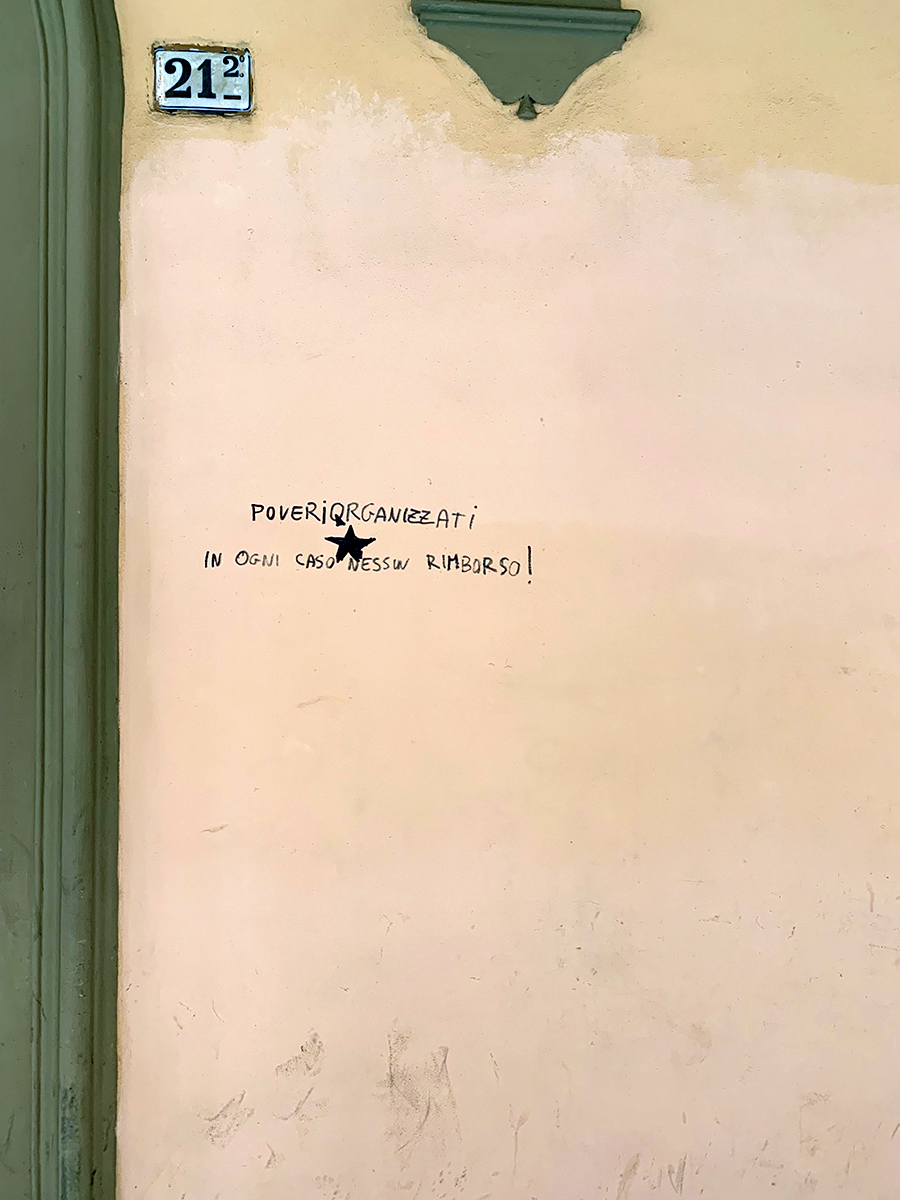 21 2º
POVERiORGANIZZATi
IN OGNI CASO NESSUN RIMBORSO!